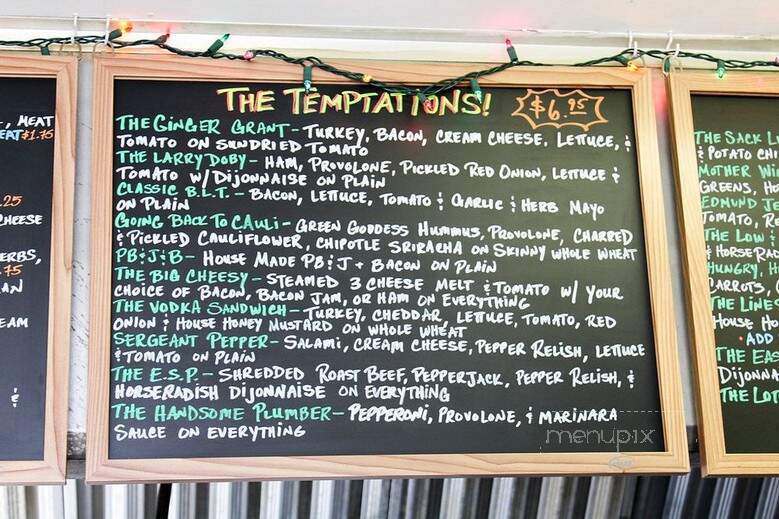 , MEAT
EAT $1.75
.25
CHEESE
ERBS,
.75
AN
EAM
&
THE TEMPTATIONS! $6.95
THE GINGER GRANT- TURKEY, BACON, CREAM CHEESE, LETTUCE, &
TOMATO ON SUNDRIED TOMATO
THE LARRY DOBY- HAM, PROVOLONE, PICKLED RED ONION, LETTUCE &
TOMATO W/ DIJONNAISE ON PLAIN
CLASSIC B.L.T.- BACON, LETTUCE, TOMATO & GARLIC & HERB MAYO
ON PLAIN
GOING BACK TO CAULI- GREEN GODDESS HUMMUS, PROVOLONE, CHARRED
& PICKLED CAULIFLOWER, CHIPOTLE SRIRACHA ON SKINNY WHOLE WHEAT
PB&J&B- HOUSE MADE PB&J + BACON ON PLAIN
THE BIG CHEESY- STEAMED 3 CHEESE MELT & TOMATO W/ YOUR
CHOICE OF BACON, BACON JAM, OR HAM ON EVERYTHING
THE VODKA SANDWICH- TURKEY, CHEDDAR, LETTUCE, TOMATO, RED
ONION & HOUSE HONEY MUSTARD ON WHOLE WHEAT
SERGEANT PEPPER- SALAMI, CREAM CHEESE, PEPPER RELISH, LETTUCE
& TOMATO ON PLAIN
THE E.S.P.- SHREDDED ROAST BEEF, PEPPERJACK, PEPPER RELISH, &
HORSERADISH DIJONNAISE ON EVERYTHING
THE HANDSOME PLUMBER- PEPPERONI, PROVOLONE, & MARINARA
SAUCE ON EVERYTHING
THE SACK L
& POTATO CHI
MOTHER WIN
GREENS, HO
EDMUND JE
TOMATO, RE
THE LOW &
& HORSERAD
HUNGRY, H
CARROTS, C
THE LINES
HOUSE HO
• ADD
THE EAS
DIJONNA
THE LOT
menupix